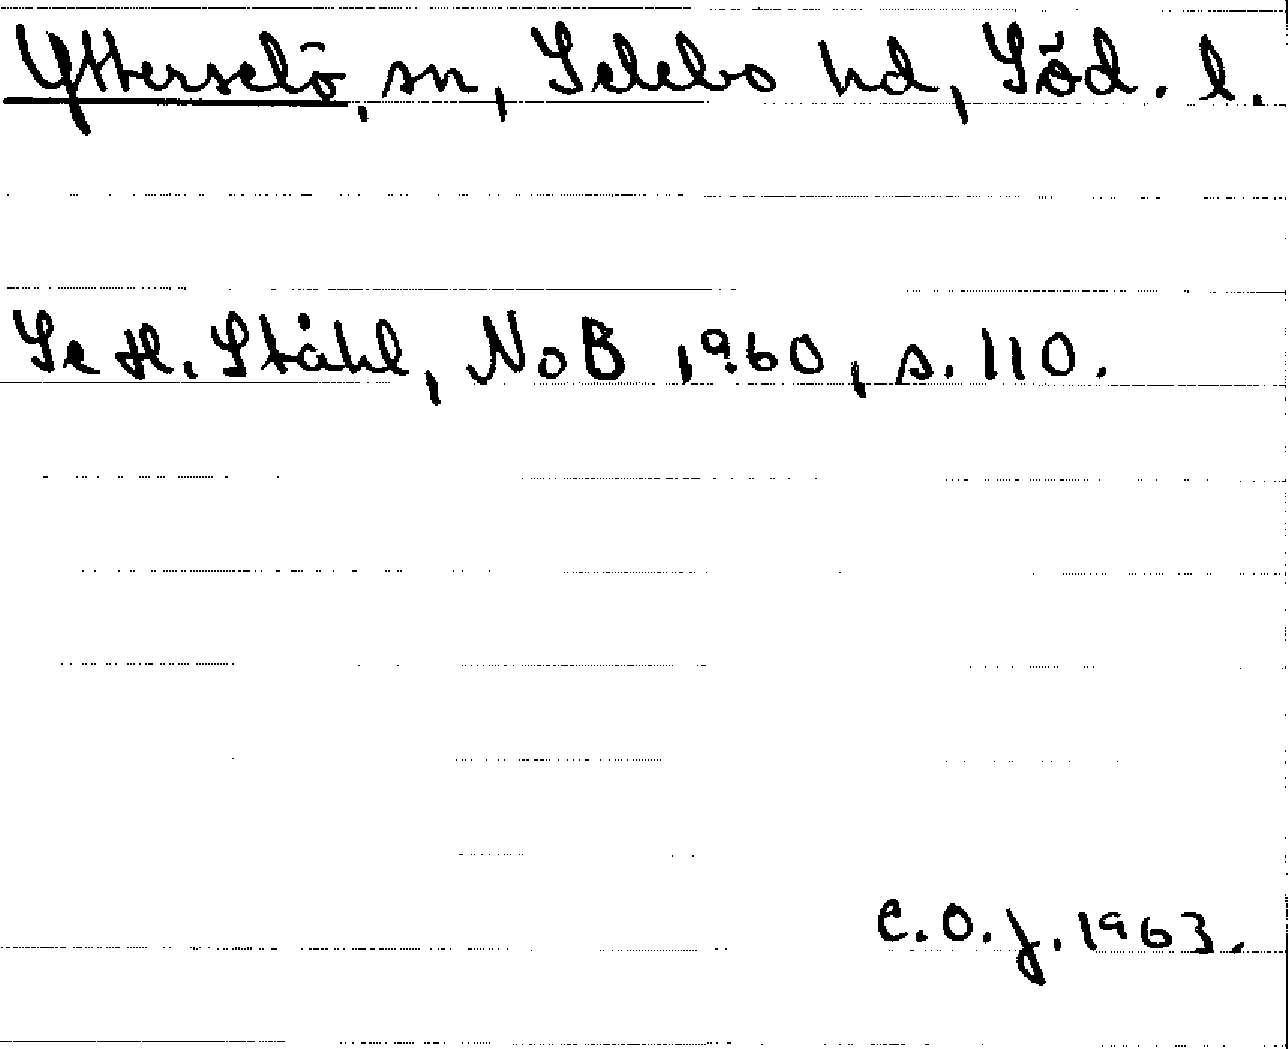 Ytterselö, sn, Selebo hd, Söd. l.
Se H. Ståhl, NoB 1960, s. 110.
C.O.J. 1963.